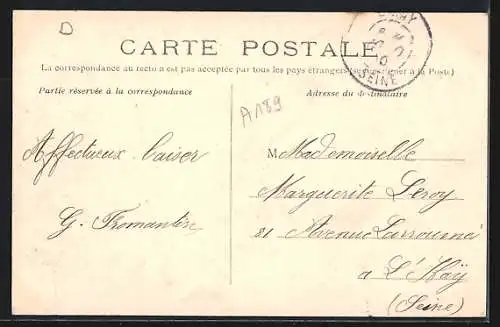 CARTE POSTALE
La correspondance au recto n'est pas acceptée par tous les pays étrangers (se renseigner à la Poste)
Partie réservée à la correspondance
Adresse du destinataire
A189
SEINE
Affectueux baiser
G. Fromantin
M Mademoiselle
Marguerite Leroy
81 Avenue Larroumès
a L'Haÿ
(Seine)